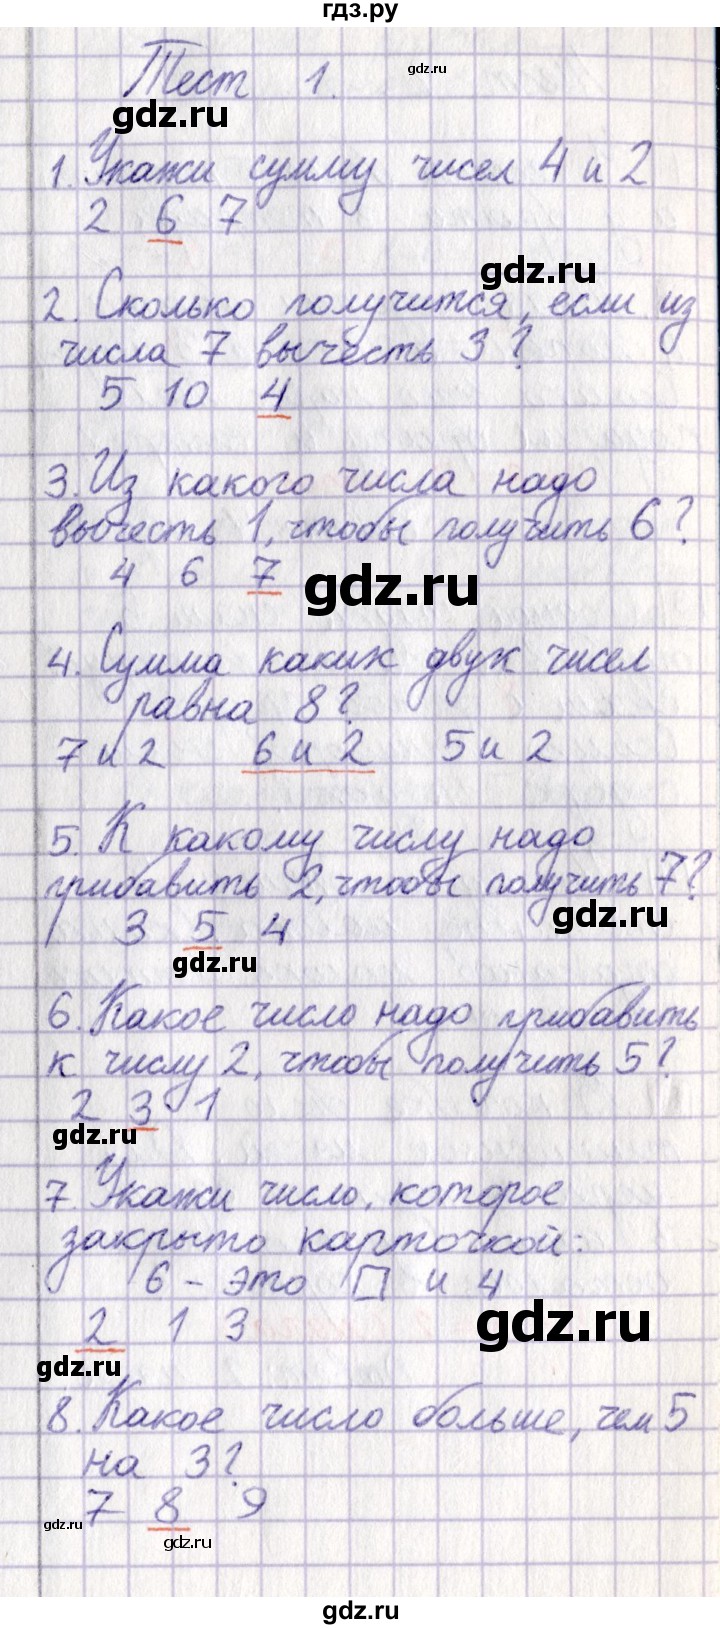 гдз.ру
Тест 1.
gdz.ru
gdz.ru
1. Укажи сумму чисел 4 и 2
2 6 7
gdz.ru
2. Сколько получится, если из
числа 7 вычесть 3?
5 10 4
3. Из какого числа надо
вычесть 1, чтобы получить 6?
4 6 7
gdz.ru
4. Сумма каких двух чисел
равна 8?
7 и 2 6 и 2 5 и 2
5. К какому числу надо
прибавить 2, чтобы получить 7?
gdz.ru
3 5 4
gdz.ru
6. Какое число надо прибавить
к числу 2, чтобы получить 5?
2 3 1
gdz.ru
7. Укажи число, которое
закрыто карточкой:
6 - это □ и 4
2 1 3
gdz.ru
gdz.ru
8. Какое число больше, чем 5
на 3?
7 8 9
gdz.ru
gdz.ru
gdz.ru